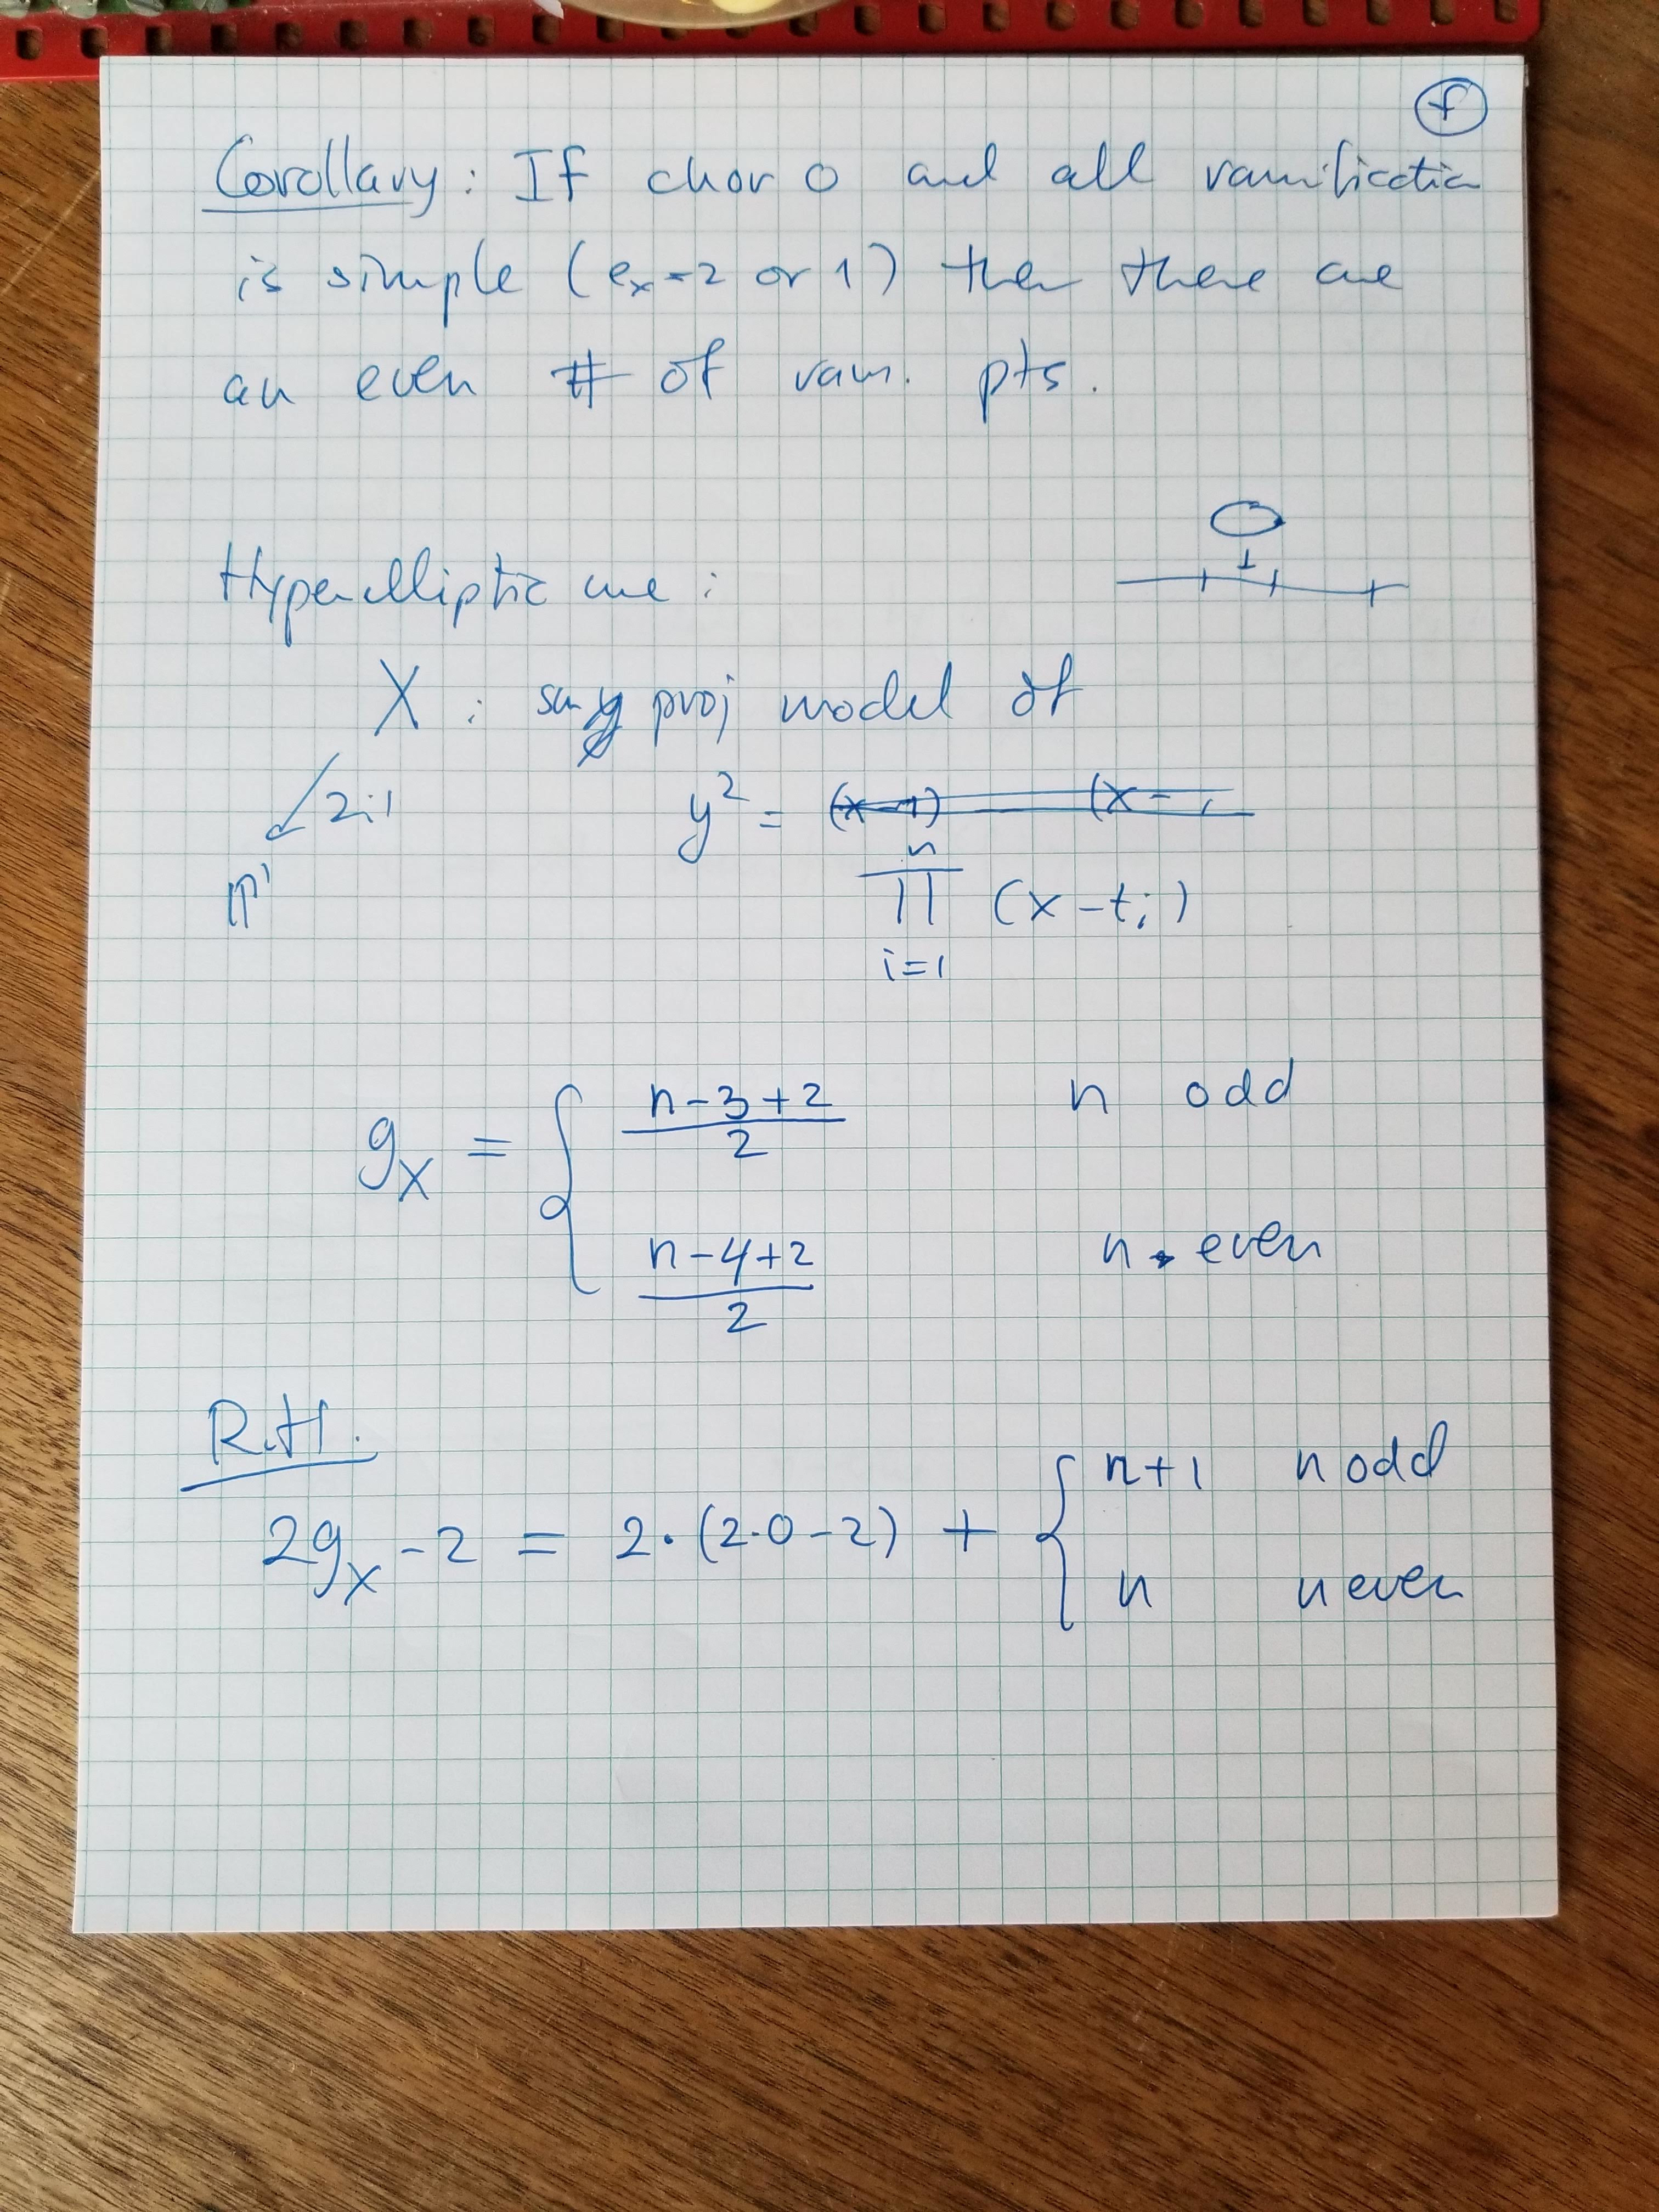 f
Corollary: If char 0 and all ramification
is simple (eₓ=2 or 1) then there are
an even # of ram. pts.
Hyperelliptic curve:
X : proj model of
2:1
y² = (x-1) (x-
P¹
n
∏ (x-tᵢ)
i=1
g_X = { (n-3+2)/2 n odd
(n-4+2)/2 n even
R.H.
2g_X - 2 = 2·(2·0-2) + { n+1 n odd
n n even